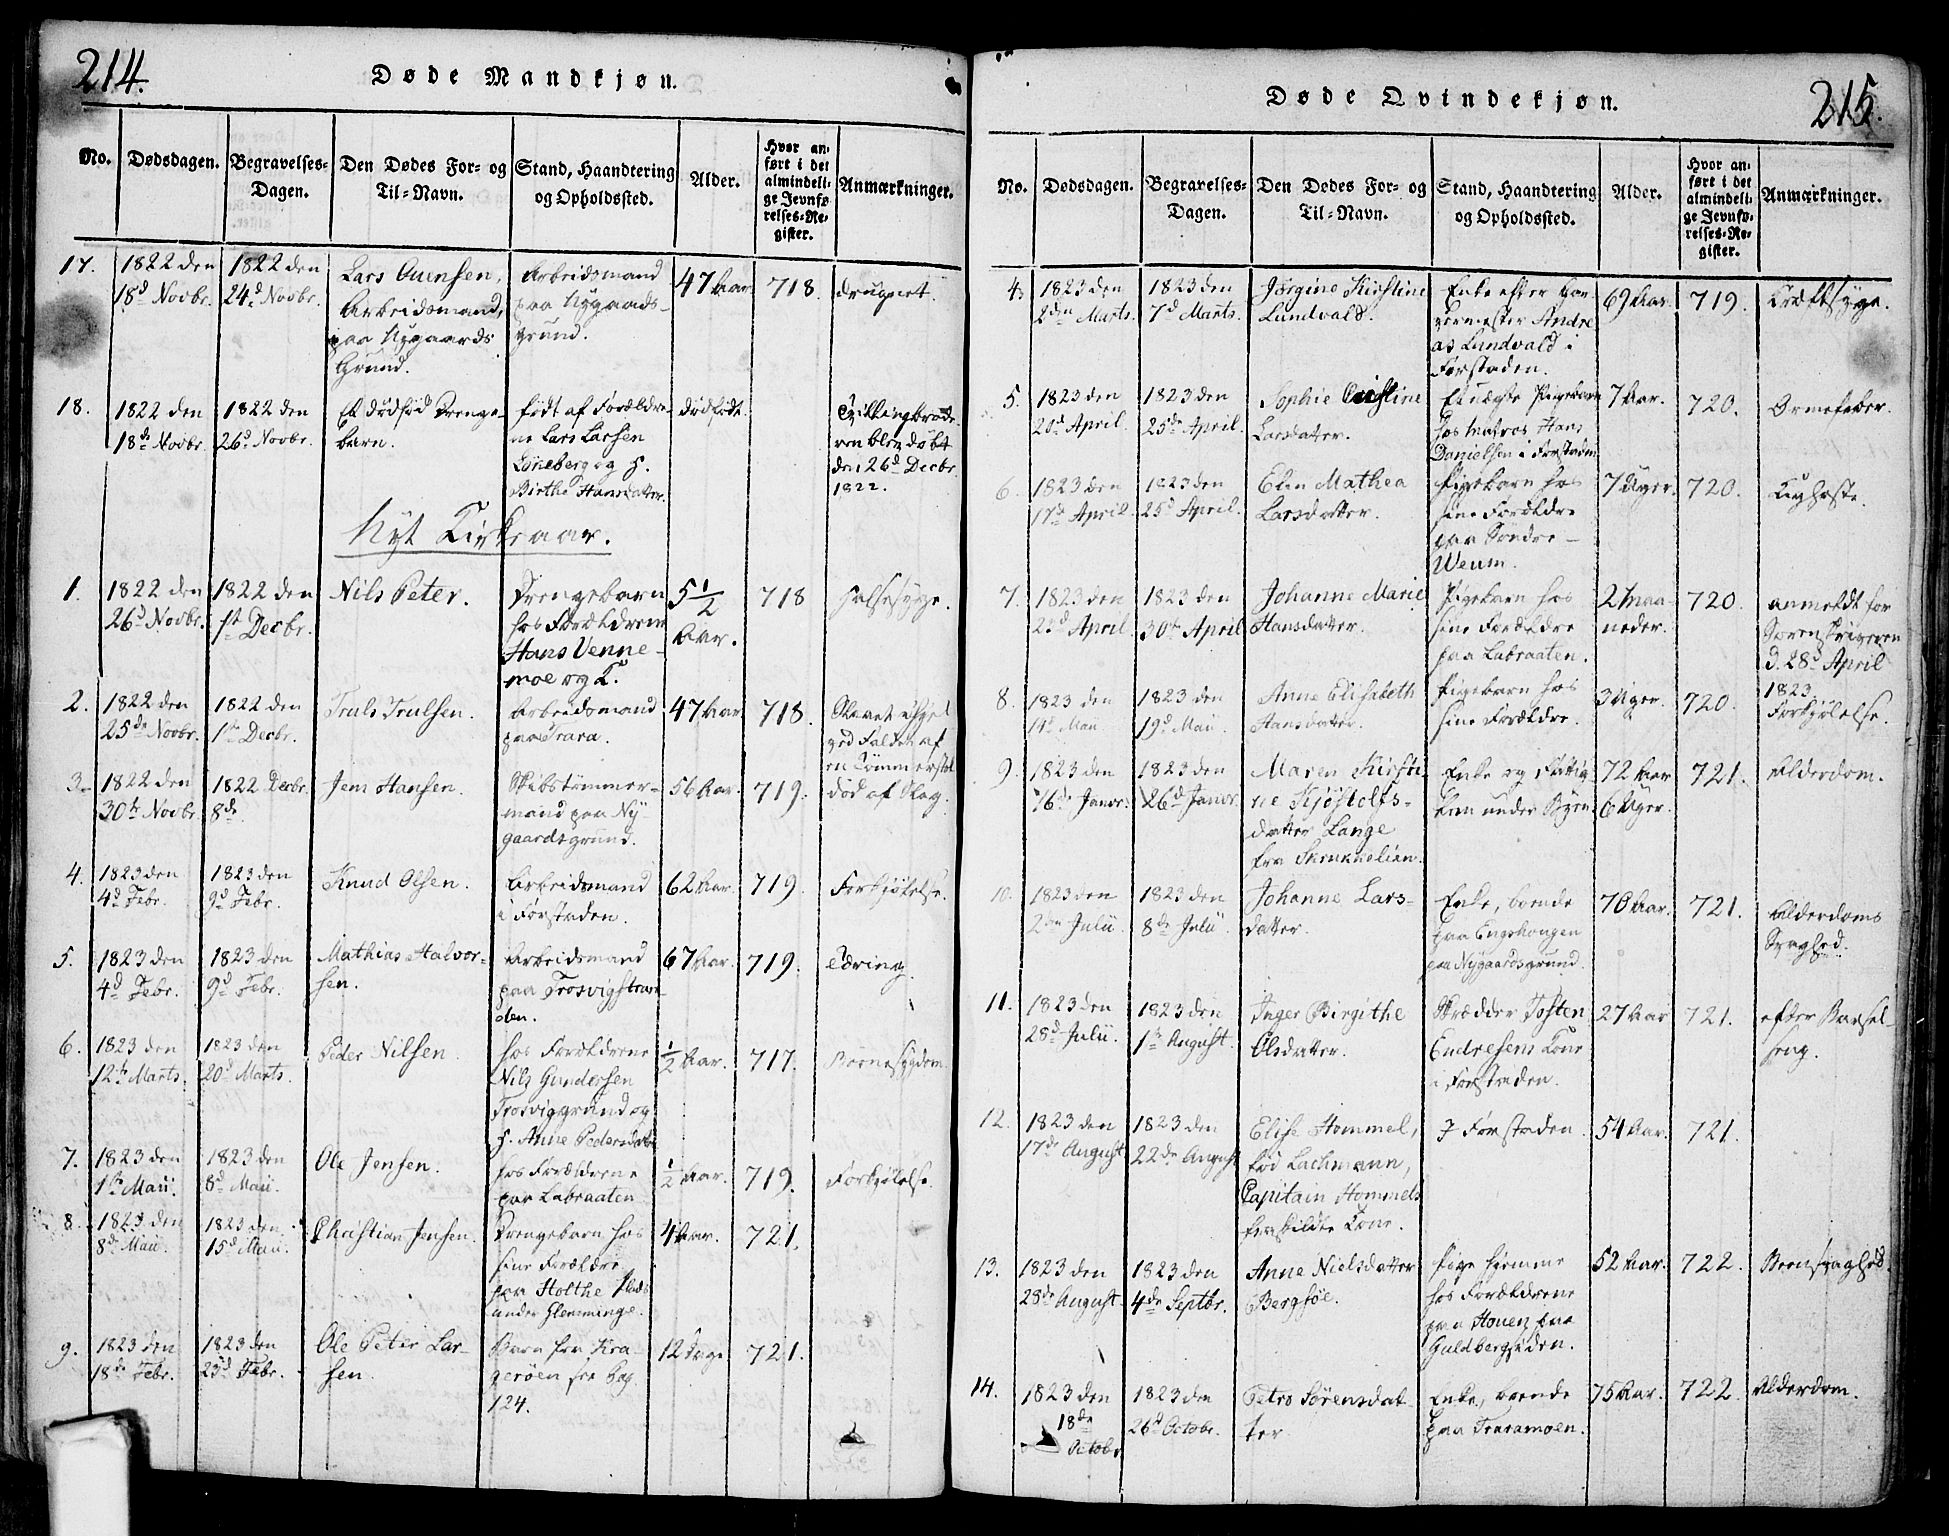 214.
Døde Mandkjøn.
No.
Dødsdagen.
Begravelses-
Dagen.
Den Dødes For- og
Til-Navn.
Stand, Haandtering
og Opholdssted.
Alder.
Hvor an-
ført i det
almindeli-
ge Jevnfø-
relses-Re-
gister.
Anmærkninger.
17.
1822 den
18d Novbr.
1822 den
24d Novbr.
Lars Evensen,
Arbeidsmand,
paa Nygaards
Grund.
Arbeidsmand
paa Nygaards-
grund.
47 Aar
718.
druknet.
18.
1822 den
18de Novbr.
1822 den
26d Novbr.
Et dødfød Drenge
barn.
født af Forældre-
ne Lars Larsen
Løneberg og H.
Birthe Hansdatter.
dødfødt.
Tvillingbrode-
ren blev døbt
den 26d Decbr
1822.
Nyt Kirkeaar.
1.
1822 den
26d Novbr.
1822 den
1ste Decbr.
Nils Peter.
Drengebarn
hos Forældrene
Hans Venne-
moe og K.
5 1/2
Aar.
718
Halssyge.
2.
1822 den
25de Novbr.
1822 den
1ste Decbr.
Truls Trulsen.
Arbeidsmand
paa Trara.
47 Aar
718.
ved Faldet af
en Tømmerstok
3.
1822 den
30te Novbr.
1822 Decbr.
8de
Jens Hansen.
Skibstømmer-
mand paa Ny-
gaardsgrund.
56 Aar.
719.
død af Slag.
4.
1823 den
4d Febr.
1823 den
9d Febr.
Knud Olsen.
Arbeidsmand
i Forstaden.
62 Aar.
719.
Forkjølelse.
5.
1823 den
4d Febr.
1823 den
9d Febr.
Mathias Halvor-
sen.
Arbeidsmand
paa Trosvigstran-
den.
67 Aar.
719.
Tæring.
6.
1823 den
12te Marts.
1823 den
20d Marts.
Peder Nilsen.
hos Forældrene
Nils Gundersen
Trosviggrund og
H. Anne Pedersdatter
1/2 Aar.
717.
Børnesygdom.
7.
1823 den
1ste Maii.
1823 den
8d Maii.
Ole Jensen.
hos Forældrene
paa Labraaten
1/2 Aar.
719.
Forkjølelse.
8.
1823 den
8d Maii.
1823 den
15d Maii.
Christian Jensen.
Drengebarn hos
sine Forældre
paa Holthe Plads
under Glemminge.
4 Aar.
721.
9.
1823 den
18de Febr.
1823 den
23d Febr.
Ole Peter Lar-
sen.
Barn fra Kra-
gerøen fra Pag.
124.
12 Dage
721.
215.
Døde Qvindekjøn.
No.
Dødsdagen.
Begravelses-
Dagen.
Den Dødes For- og
Til-Navn.
Stand, Haandtering
og Opholdssted.
Alder.
Hvor an-
ført i det
almindeli-
ge Jevnfø-
relses-Re-
gister.
Anmærkninger.
4.
1823 den
2den Marts.
1823 den
7d Marts.
Jørgine Kirstine
Lundvald.
Enke efter Gar-
vermester Andre
as Lundvald i
Forstaden.
69 Aar.
719.
Kræftsyge.
5.
1823 den
20d April.
1823 den
25de April.
Sophie Christine
Larsdatter.
Et uægte Pigebarn
hos Matros Hans
Danielsen i Forstaden
7 Aar.
720.
Ormefeber.
6.
1823 den
17d April.
1823 den
25d April.
Elen Mathea
Larsdatter.
Pigebarn hos
sine Forældre
paa Søndre-
Weum.
7 Uger.
720.
Kighoste.
7.
1823 den
22d April.
1823 den
30te April
Johanne Marie
Hansdatter.
Pigebarn hos
sine Forældre
paa Labraaten.
2 Maa-
neder.
720.
anmeldt for
Sorenskriveren
d. 28d April
1823.
8.
1823 den
14d Maii
1823 den
19d Maii.
Anne Elisabeth
Hansdatter.
Pigebarn hos
sine Forældre.
3 Uger.
720.
Forkjølelse.
9.
1823 den
16de Januar.
1823 den
26d Januar.
Maren Kirsti-
ne Kjøstolfs-
datter Lange
fra Skrukkelien.
Enke og Fattig
lem under Byen
72 Aar
6 Uger.
721.
Alderdom.
10.
1823 den
2den Julii
1823 den
8de Julii.
Johanne Lars-
datter.
Enke, boende
paa Engshougen
paa Nygaardsgrund.
70 Aar.
721.
Alderdoms
Svaghed.
11.
1823 den
28d Julii.
1823 den
1ste August.
Inger Birgithe
Olsdatter.
Skrædder Tosten
Endresens Kone
i Forstaden.
27 Aar
721.
efter Barsel-
seng.
12.
1823 den
17de August
1823 den
22de August
Elise Hommel,
fød Lachmann,
Capitain Hommels
fraskildte Kone.
I Forstaden.
54 Aar.
721.
13.
1823 den
28de August.
1823 den
4de Septbr.
Anne Nielsdatter
Bergsøe.
Pige hjemme
hos Forældrene
paa Houen paa
Guldbergsiden.
52 Aar.
722.
14.
1823 den
18de
Octobr
1823 den
26d Octobr.
Petro Sørensdat-
ter.
Enke, boende
paa Traramoen.
75 Aar.
722.
Alderdom.